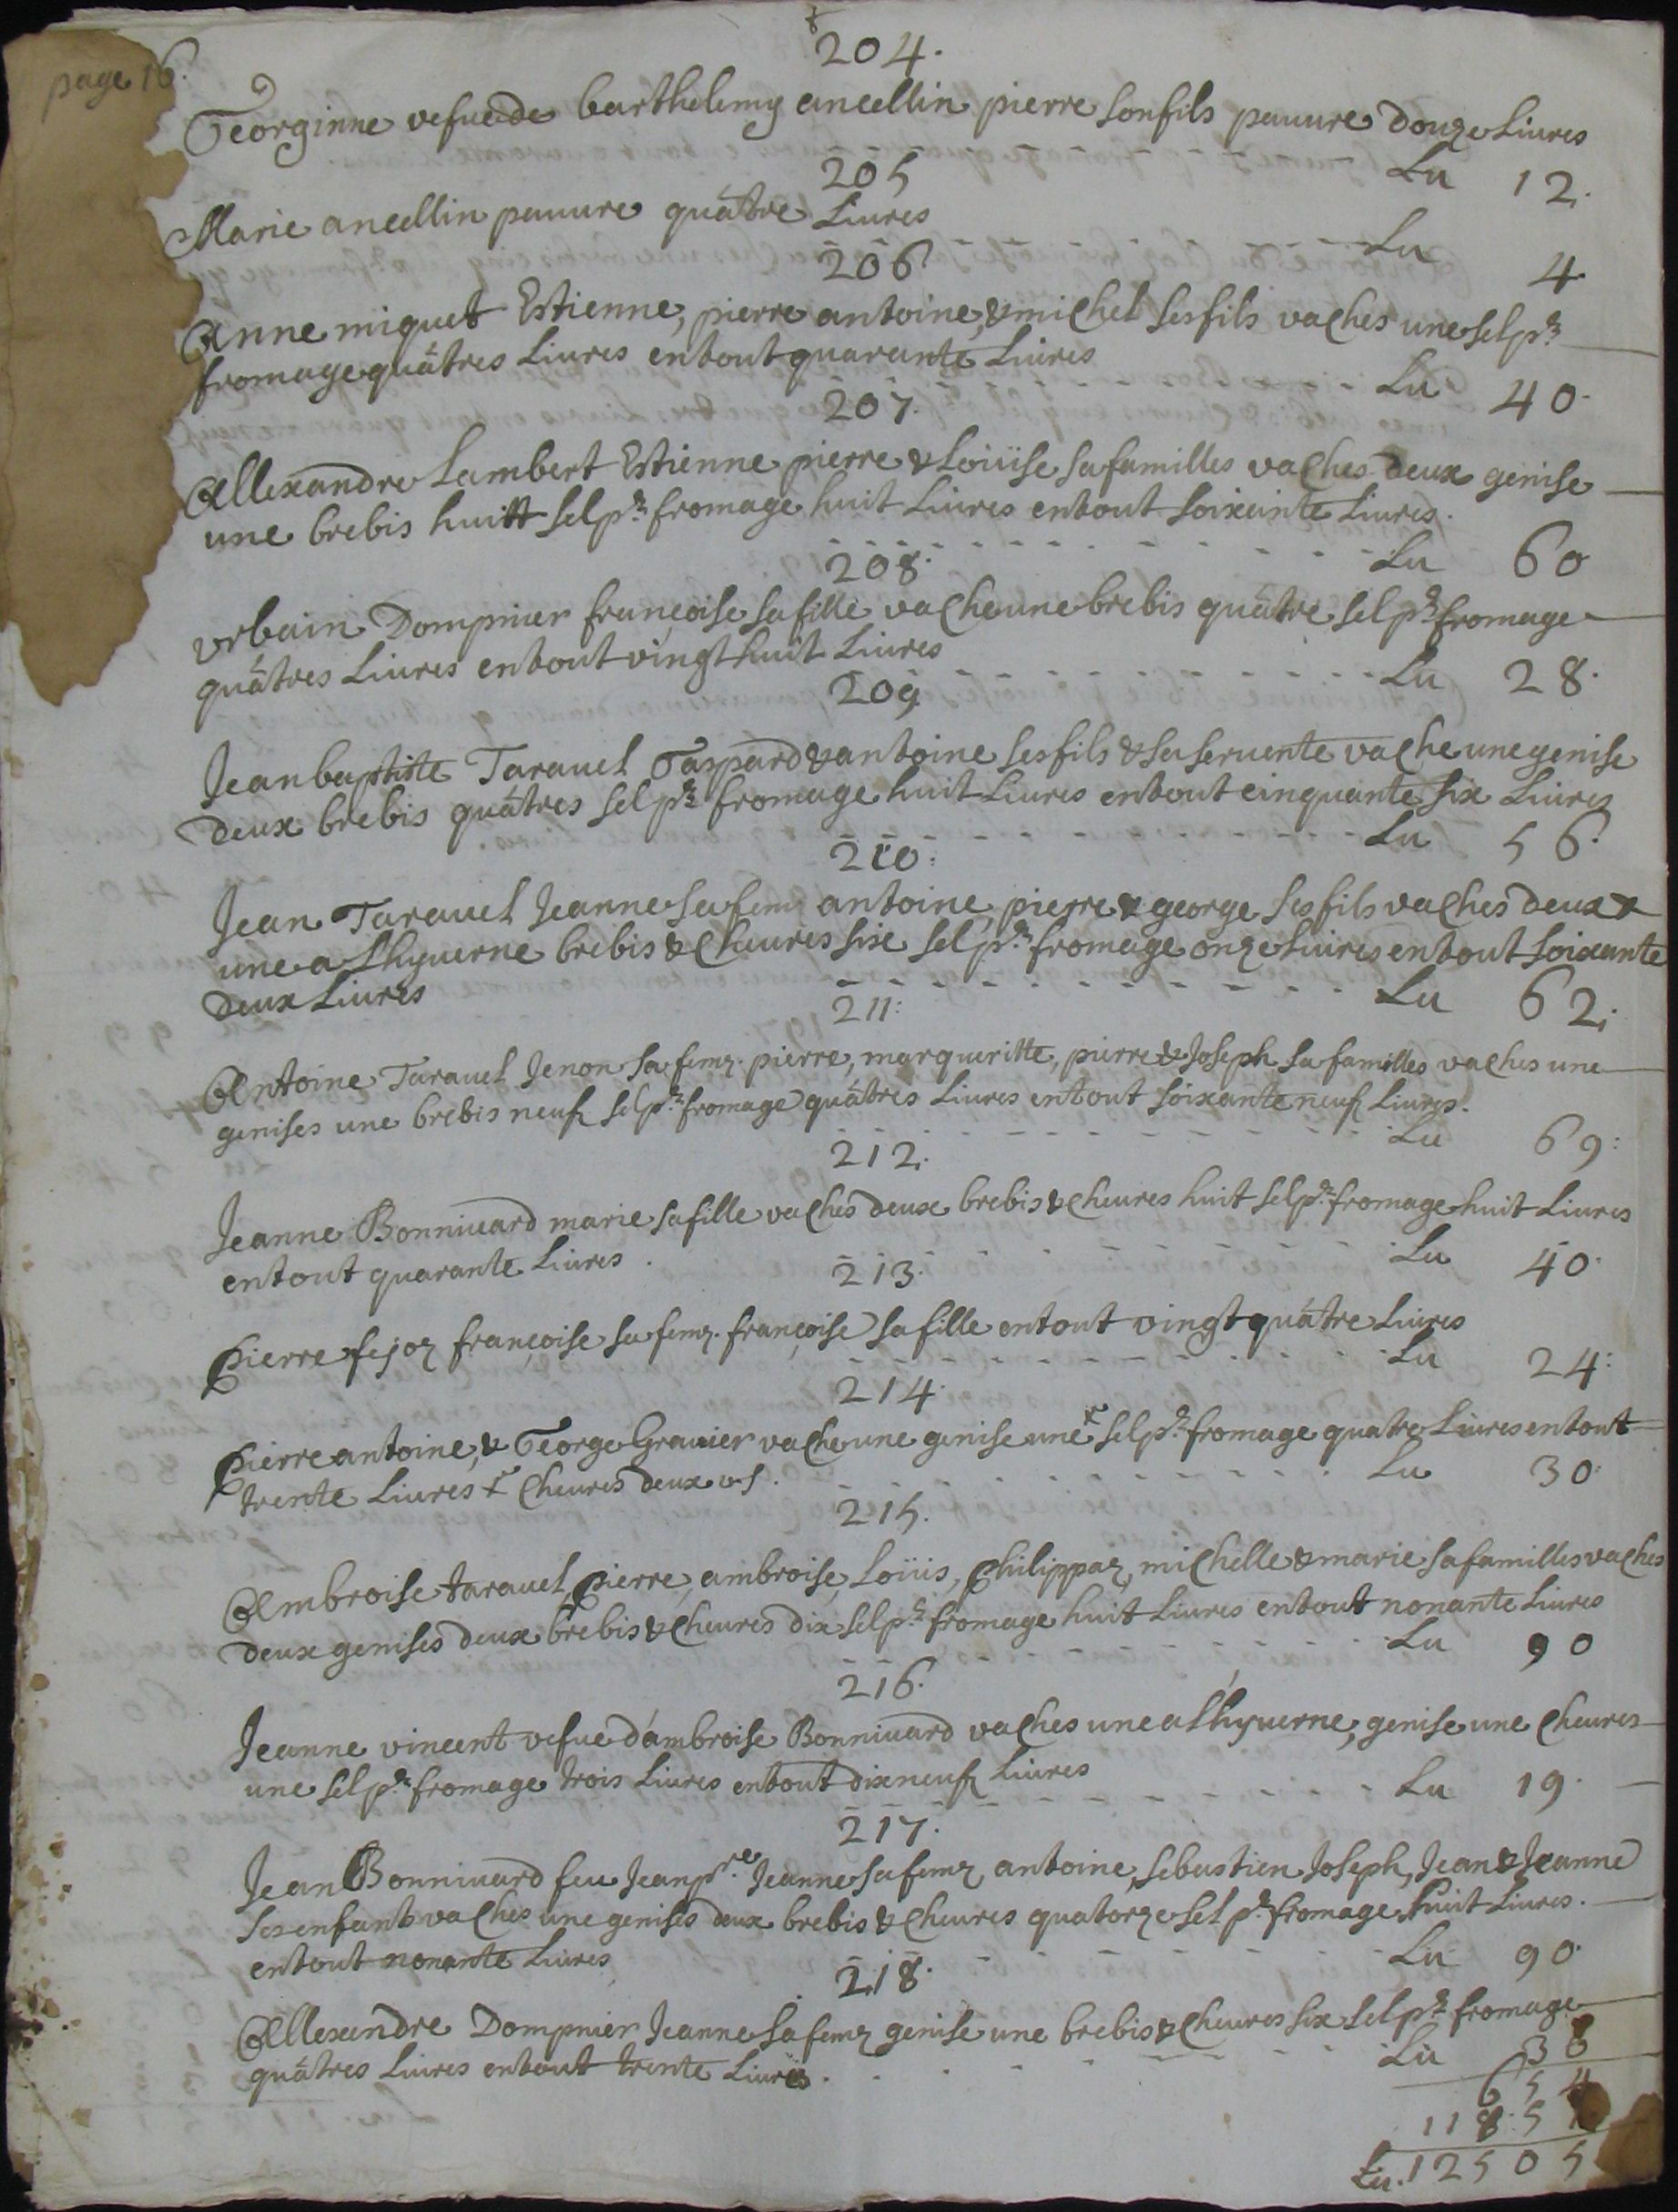 page 16.
204.
Georginne vefue de barthelemy ancellin pierre son fils pauure douze Liures
Lu 12.
205
Marie ancellin pauure quâtre Liures
Lu 4.
206
Anne miquet Estienne, pierre antoine, & michel ses fils vaches une sel pr
fromage quâtres Liures en tout quarante Liures
Lu 40.
207.
Allexandre Lambert Estienne pierre & Loüise sa familles vaches deux genise
une brebis huitt sel pr fromage huit Liures en tout soixante Liures.
Lu 60
208.
Vrbain Dompnier françoise sa fille vache une brebis quâtre sel pr fromage
quâtres Liures en tout vingt huit Liures
Lu 28.
209
Jean baptiste Tarauel Gaspard & antoine ses fils & sa seruente vache une genise
deux brebis quâtres sel pr fromage huit Liures en tout cinquante six Liures
Lu 56.
210:
Jean Tarauel Jeanne sa fem antoine, pierre & george ses fils vaches deux &
une a Lhyuerne brebis & Cheures six sel pr fromage onze Liures en tout soixante
deux Liures
Lu 62.
211:
Antoine Tarauel Jenon sa feme pierre, margueritte, pierre & Joseph sa familles vaches une
genises une brebis neuf sel pr fromage quâtres Liures en tout soixante neuf Liures.
Lu 69:
212.
Jeanne Bonniuard marie sa fille vaches deux brebis & Cheures huit sel pr fromage huit Liures
en tout quarante Liures.
Lu 40.
213.
Pierre fejoz françoise sa feme françoise sa fille en tout vingt quâtre Liures
Lu 24:
214.
Pierre antoine, & George Grauier vache une genise une + sel pr fromage quatre Liures en tout
trente Liures + Cheures deux
Lu 30.
215.
Ambroise tarauel Pierre, ambroise, Loüis, Philippaz, michelle & marie sa familles vaches
deux genises deux brebis & Cheures dix sel pr fromage huit Liures en tout nonante Liures
Lu 90
216.
Jeanne vincent vefue d'ambroise Bonniuard vaches une a Lhyuerne, genise une Cheures
une sel pr fromage trois Liures en tout dix neuf Liures
Lu 19.
217.
Jean Bonniuard feu Jean pre Jeanne sa feme antoine, sebastien Joseph, Jean & Jeanne
ses enfants vaches une genises deux brebis & Cheures quatorze sel pr fromage huit Liures.
en tout nonante Liures
Lu 90.
218.
Allexandre Dompnier Jeanne sa feme genise une brebis & Cheures six sel pr fromage
quâtres Liures en tout trente Liures.
Lu 30
654
11851
Lu. 12505